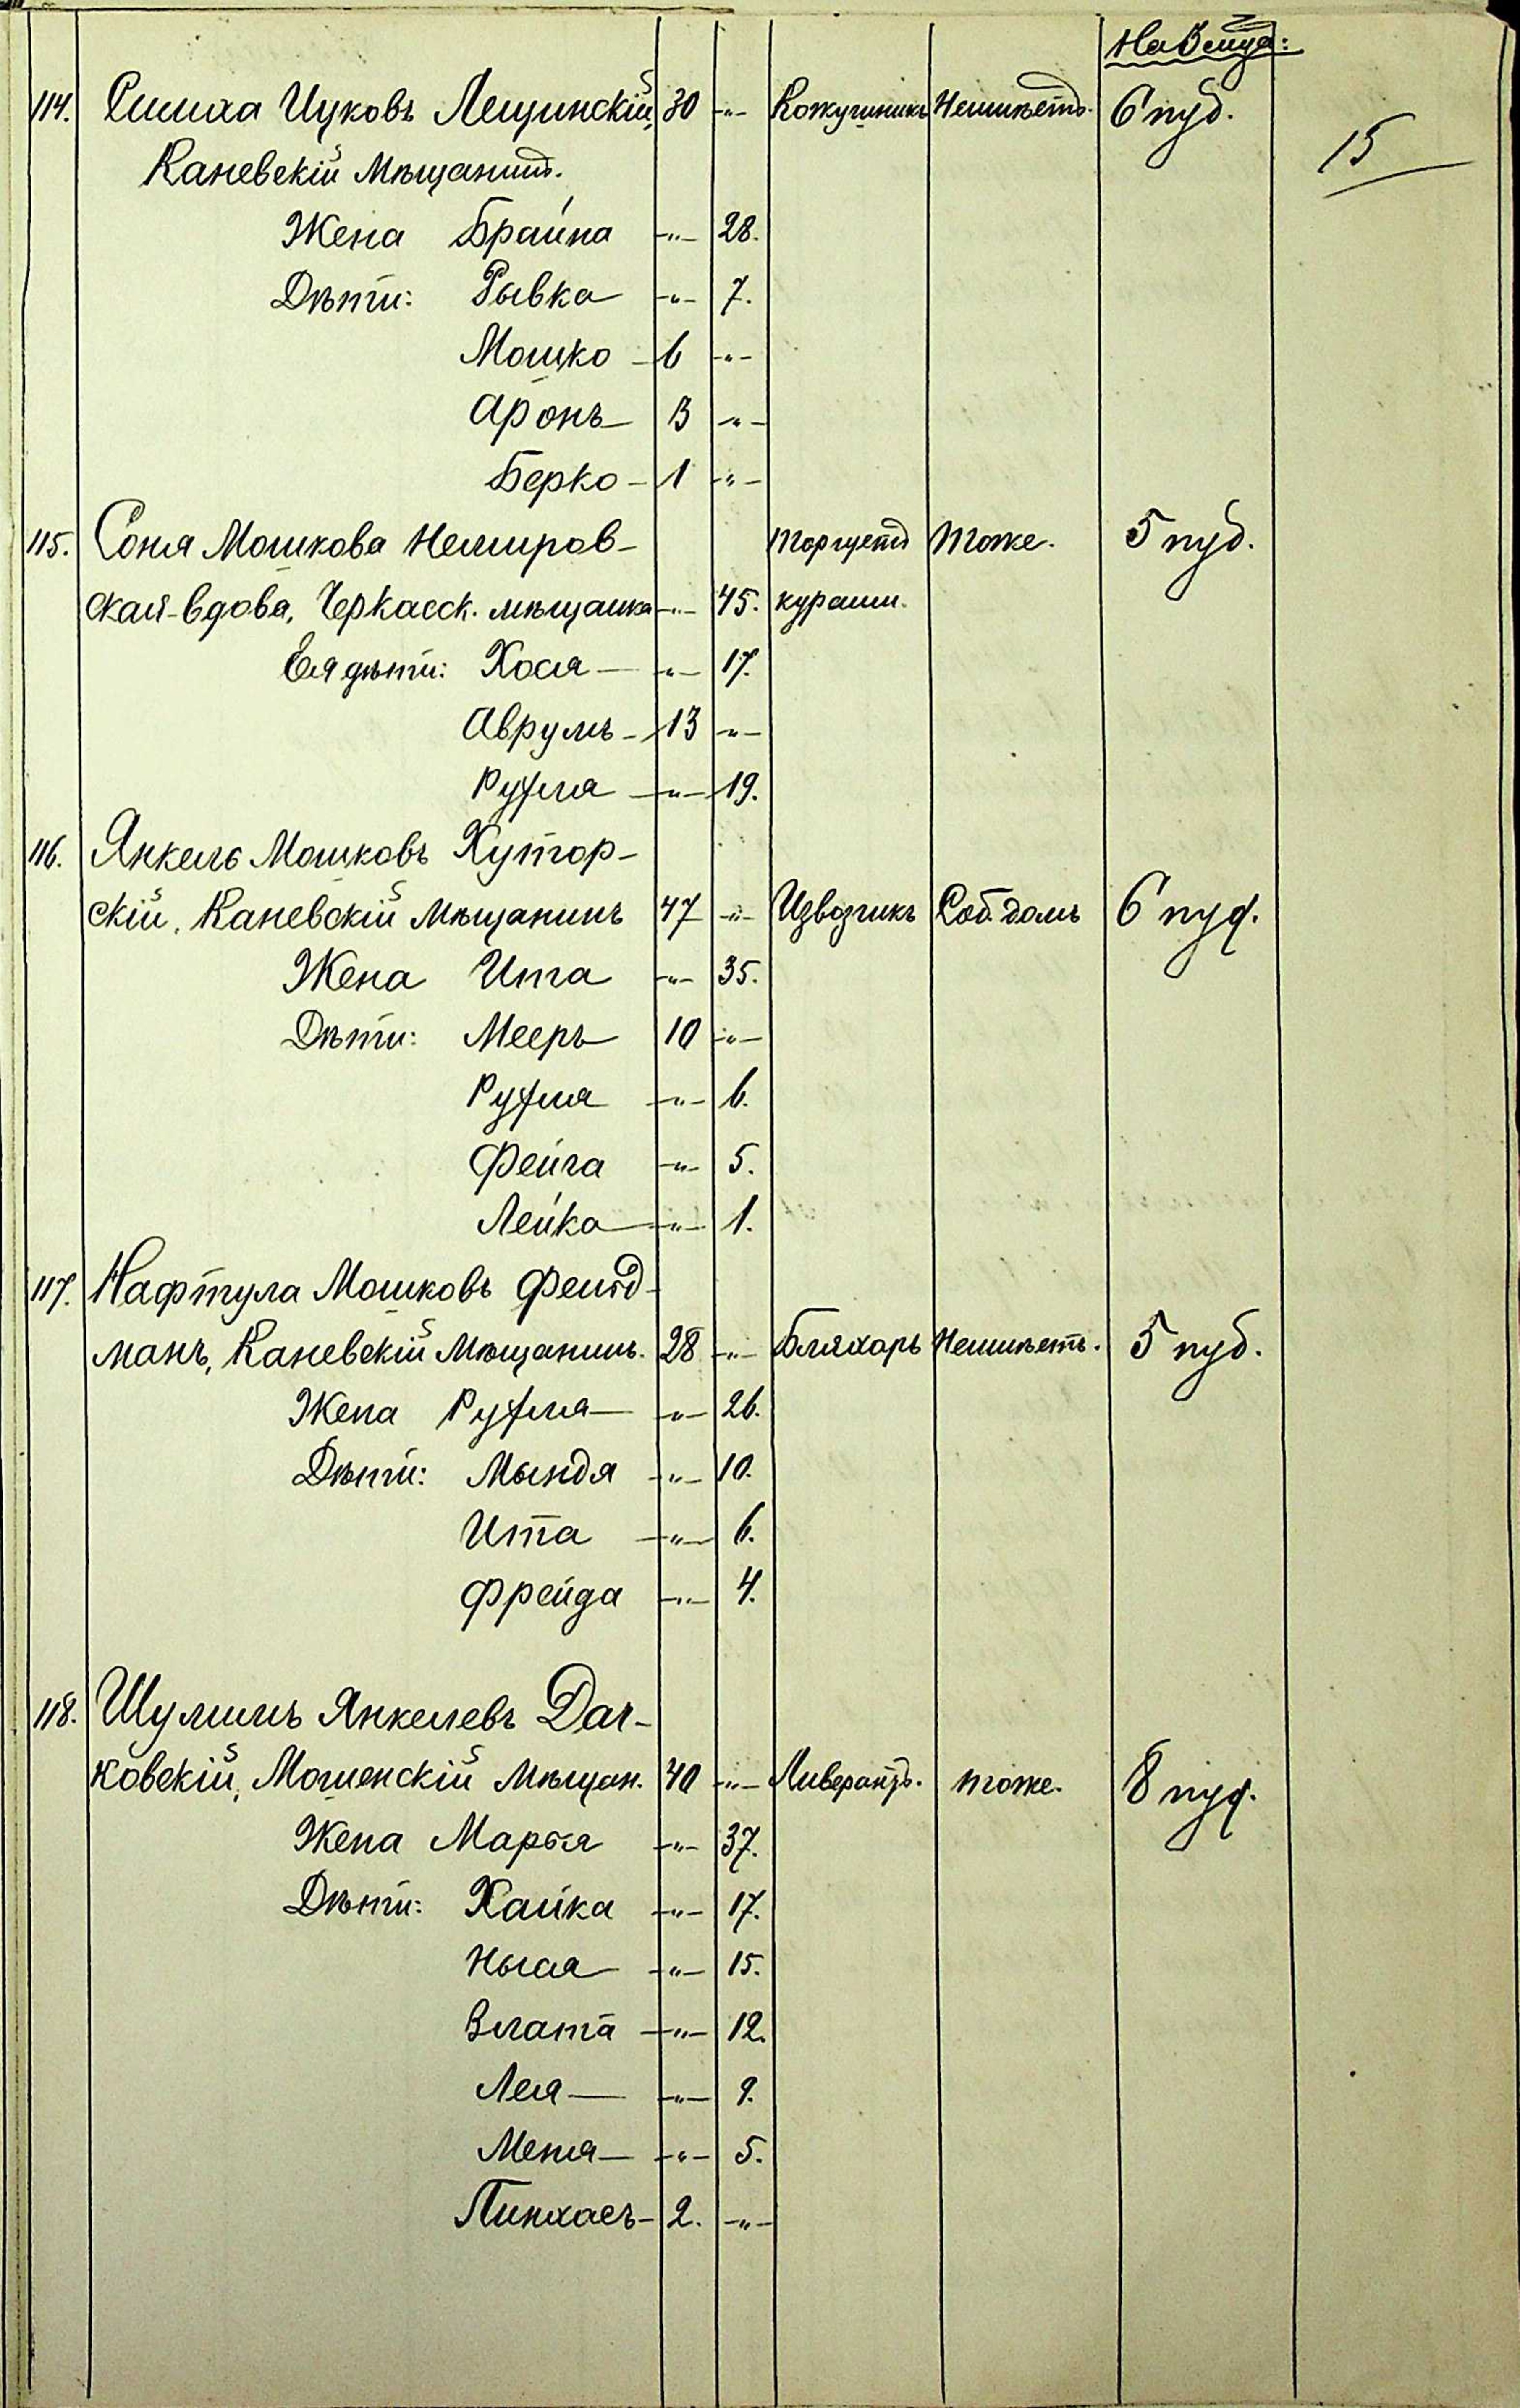 На 3 м-ца:
15
114. Симха Ицковъ Лещинскій, 30 -„- Кожушникъ Неимѣетъ. 6 пуд.
Каневскій Мѣщанин.
Жена Брайна -„- 28.
Дѣти: Рывка -„- 7.
Мошко - 6 -„-
Аронъ - 3 -„-
Берко - 1 -„-
115. Соня Мошкова Немиров- торгуетъ тоже. 5 пуд.
ская-вдова, Черкасск. мѣщанка -„- 45. курами.
Ея дѣти: Хося - -„- 17.
Аврумъ - 13 -„-
Рухля -„- 19.
116. Янкель Мошковъ Хутор-
скій, Каневскій Мѣщанинъ 47 -„- Извозчикъ Соб. домъ 6 пуд.
Жена Ита -„- 35.
Дѣти: Мееръ 10 -„-
Рухля -„- 6.
Фейга -„- 5.
Лейка -„- 1.
117. Нафтула Мошковъ Фельд-
манъ, Каневскій Мѣщанинъ. 28 -„- Бляхарь Неимѣетъ. 5 пуд.
Жена Рухля -„- 26.
Дѣти: Мындя -„- 10.
Ита -„- 6.
Фрейда -„- 4.
118. Шулимъ Янкелевъ Дач-
ковскій, Мошенскій Мѣщан. 40 -„- Ливерантъ. тоже. 8 пуд.
Жена Марья -„- 37.
Дѣти: Хайка -„- 17.
Ныся -„- 15.
Злата -„- 12.
Лея -„- 9.
Меня -„- 5.
Пинхасъ - 2. -„-